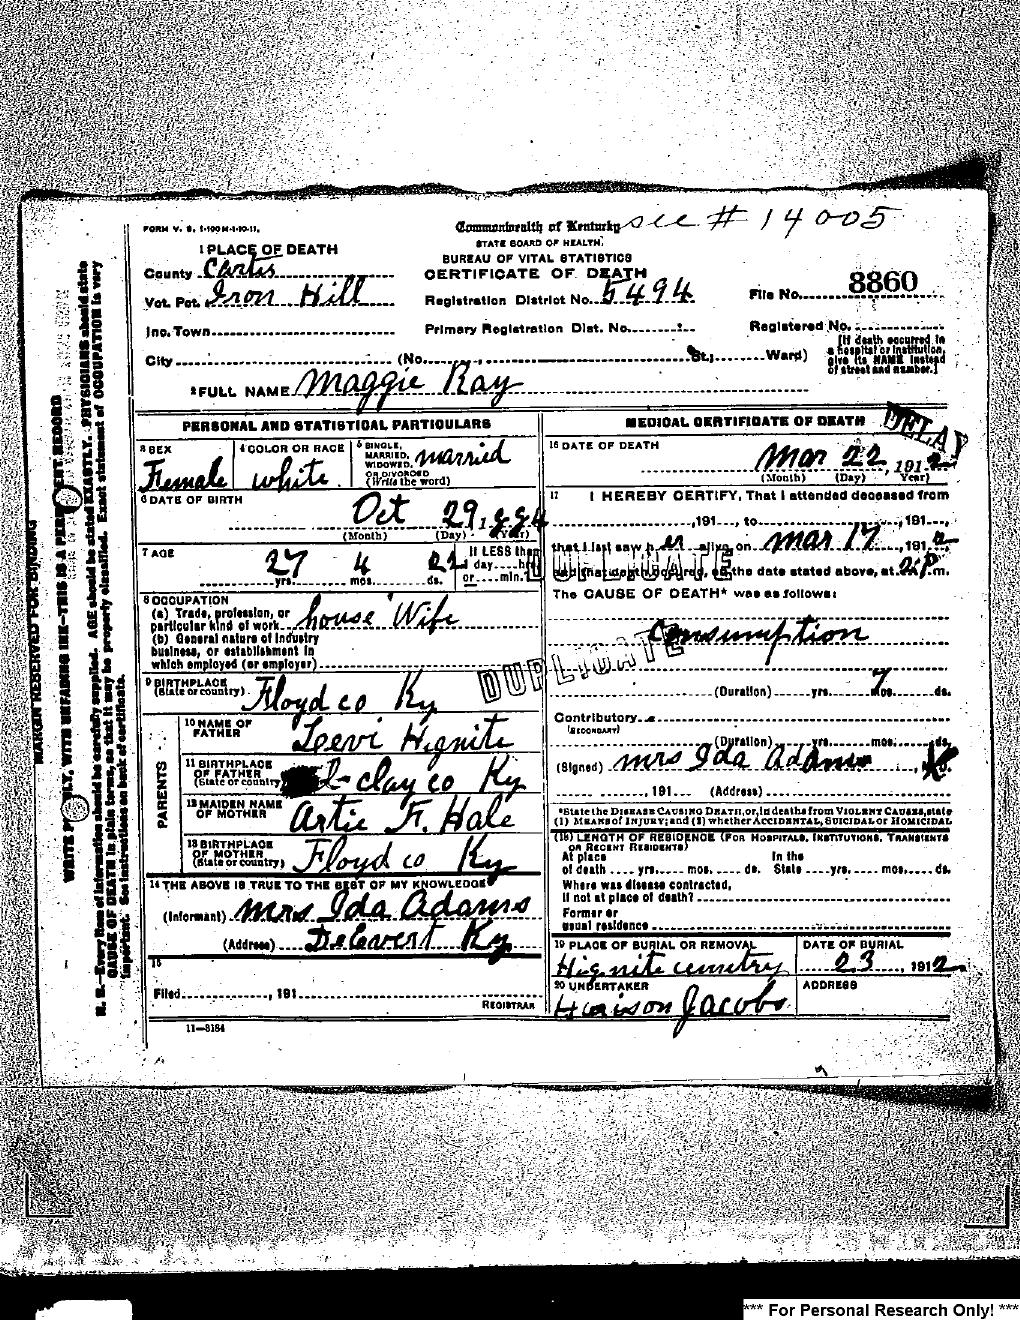 see # 14005
FORM V. S. 1-100M-1-10-11.
Commonwealth of Kentucky
STATE BOARD OF HEALTH.
BUREAU OF VITAL STATISTICS
CERTIFICATE OF DEATH
1 PLACE OF DEATH
County Carter
Vot. Pct. Iron Hill
Registration District No. 5494
File No. 8860
Inc. Town
Primary Registration Dist. No.
Registered No.
City (No. , St.; Ward)
[If death occurred in
a hospital or institution,
give its NAME instead
of street and number.]
2 FULL NAME Maggie Ray
PERSONAL AND STATISTICAL PARTICULARS
3 SEX
Female
4 COLOR OR RACE
white
5 SINGLE,
MARRIED,
WIDOWED,
OR DIVORCED
(Write the word)
married
6 DATE OF BIRTH
Oct 29, 1884
(Month) (Day) (Year)
7 AGE
27 yrs. 4 mos. 22 ds.
If LESS than
1 day....hrs
or....min.
8 OCCUPATION
(a) Trade, profession, or
particular kind of work house Wife
(b) General nature of industry
business, or establishment in
which employed (or employer)
9 BIRTHPLACE
(State or country) Floyd co Ky
PARENTS
10 NAME OF
FATHER Leevi Hignite
11 BIRTHPLACE
OF FATHER
(State or country) clay co Ky
12 MAIDEN NAME
OF MOTHER Artie F. Hale
13 BIRTHPLACE
OF MOTHER
(State or country) Floyd co Ky
14 THE ABOVE IS TRUE TO THE BEST OF MY KNOWLEDGE
(Informant) Mrs Ida Adams
(Address) Ky
15
Filed , 191
REGISTRAR
11—3184
MEDICAL CERTIFICATE OF DEATH
DELAY
16 DATE OF DEATH
Mar 22, 1912
(Month) (Day) (Year)
17 I HEREBY CERTIFY, That I attended deceased from
,191..., to ,191...,
that I last saw her alive on Mar 17, 1912
and that death occurred, on the date stated above, at 2 P m.
DUPLICATE
The CAUSE OF DEATH* was as follows:
Consumption
DUPLICATE
(Duration) yrs. 7 mos. ds.
Contributory
(SECONDARY)
(Duration) yrs. mos. ds.
(Signed) Mrs Ida Adams
, 191... (Address)
*State the DISEASE CAUSING DEATH, or, in deaths from VIOLENT CAUSES, state
(1) MEANS of INJURY; and (2) whether ACCIDENTAL, SUICIDAL or HOMICIDAL
(18) LENGTH OF RESIDENCE (FOR HOSPITALS, INSTITUTIONS, TRANSIENTS
OR RECENT RESIDENTS)
At place In the
of death .... yrs. .... mos. .... ds. State .... yrs. .... mos. .... ds.
Where was disease contracted,
if not at place of death?
Former or
usual residence
19 PLACE OF BURIAL OR REMOVAL
Hignite cemetry
DATE OF BURIAL
23, 1912
20 UNDERTAKER
Harison Jacobs
ADDRESS
MARGIN RESERVED FOR BINDING
WRITE PLAINLY, WITH UNFADING INK—THIS IS A PERMANENT RECORD
N. B.—Every item of information should be carefully supplied. AGE should be stated EXACTLY. PHYSICIANS should state
CAUSE OF DEATH in plain terms, so that it may be properly classified. Exact statement of OCCUPATION is very
important. See instructions on back of certificate.
*** For Personal Research Only! ***